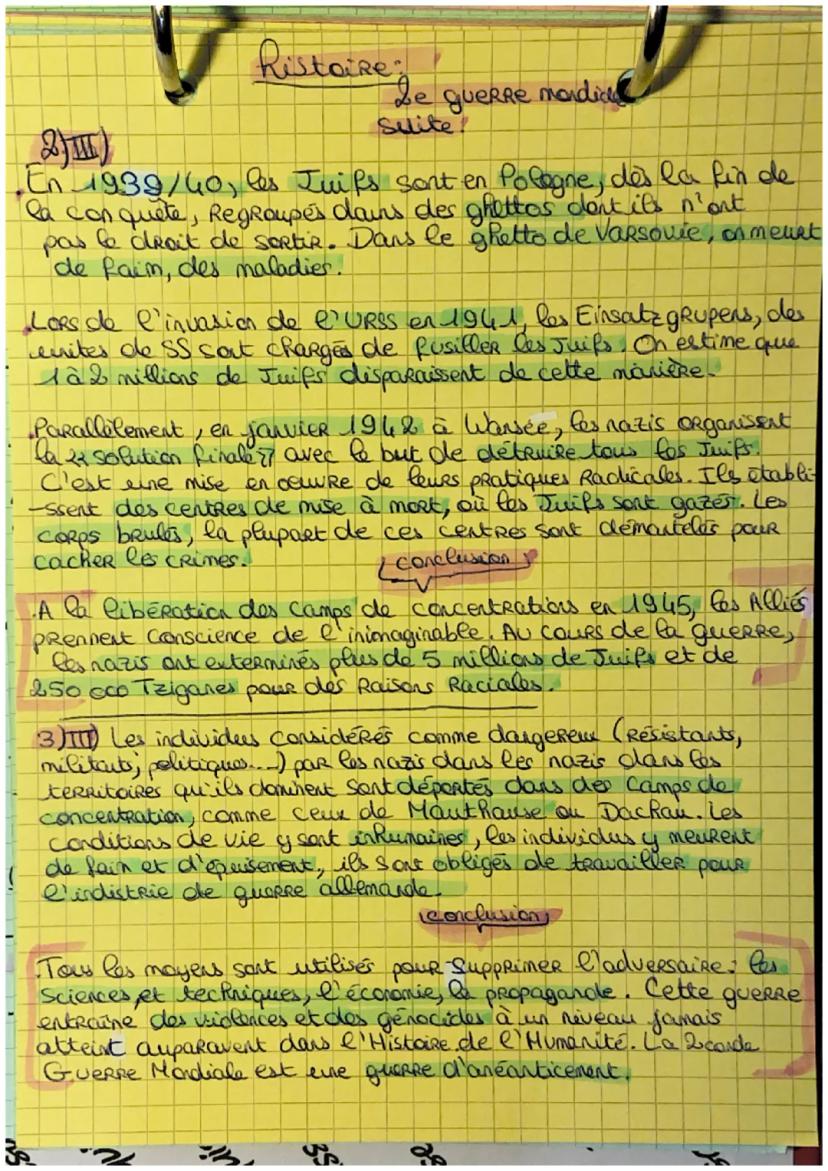 histoire:
2e guerre mondiale
suite!
2) III)
.En 1939/40, les Juifs sont en Pologne, dès la fin de
la conquête, regroupés dans des ghettos dont ils n'ont
pas le droit de sortir. Dans le ghetto de Varsovie, on meurt
de faim, des maladies.
.Lors de l'invasion de l'URSS en 1941, les Einsatzgrupens, des
unites de SS sont chargés de fusiller les Juifs. On estime que
1 à 2 millions de Juifs disparaissent de cette manière.
.Parallèlement, en janvier 1942 à Wansée, les nazis organisent
la « solution finale » avec le but de détruire tous les Juifs.
C'est une mise en oeuvre de leurs pratiques radicales. Ils établi-
-ssent des centres de mise à mort, où les Juifs sont gazés. Les
corps brulés, la plupart de ces centres sont démantelés pour
cacher les crimes.
conclusion
.A la libération des camps de concentrations en 1945, les Alliés
prennent conscience de l'inimaginable. Au cours de la guerre,
les nazis ont exterminés plus de 5 millions de Juifs et de
250 000 Tziganes pour des raisons raciales.
3) III) Les individus considérés comme dangereux (résistants,
militants, politiques...) par les nazis dans les nazis dans les
territoires qu'ils dominent sont déportés dans des camps de
concentration, comme ceux de Mauthause ou Dachau. Les
conditions de vie y sont inhumaines, les individus y meurent
de faim et d'épuisement, ils sont obligés de travailler pour
l'indistrie de guerre allemande.
conclusion
.Tous les moyens sont utilisés pour supprimer l'adversaire: les
sciences et techniques, l'économie, la propagande. Cette guerre
entraîne des violences et des génocides à un niveau jamais
atteint auparavent dans l'Histoire de l'Humanité. La 2conde
Guerre Mondiale est une guerre d'anéanticement.